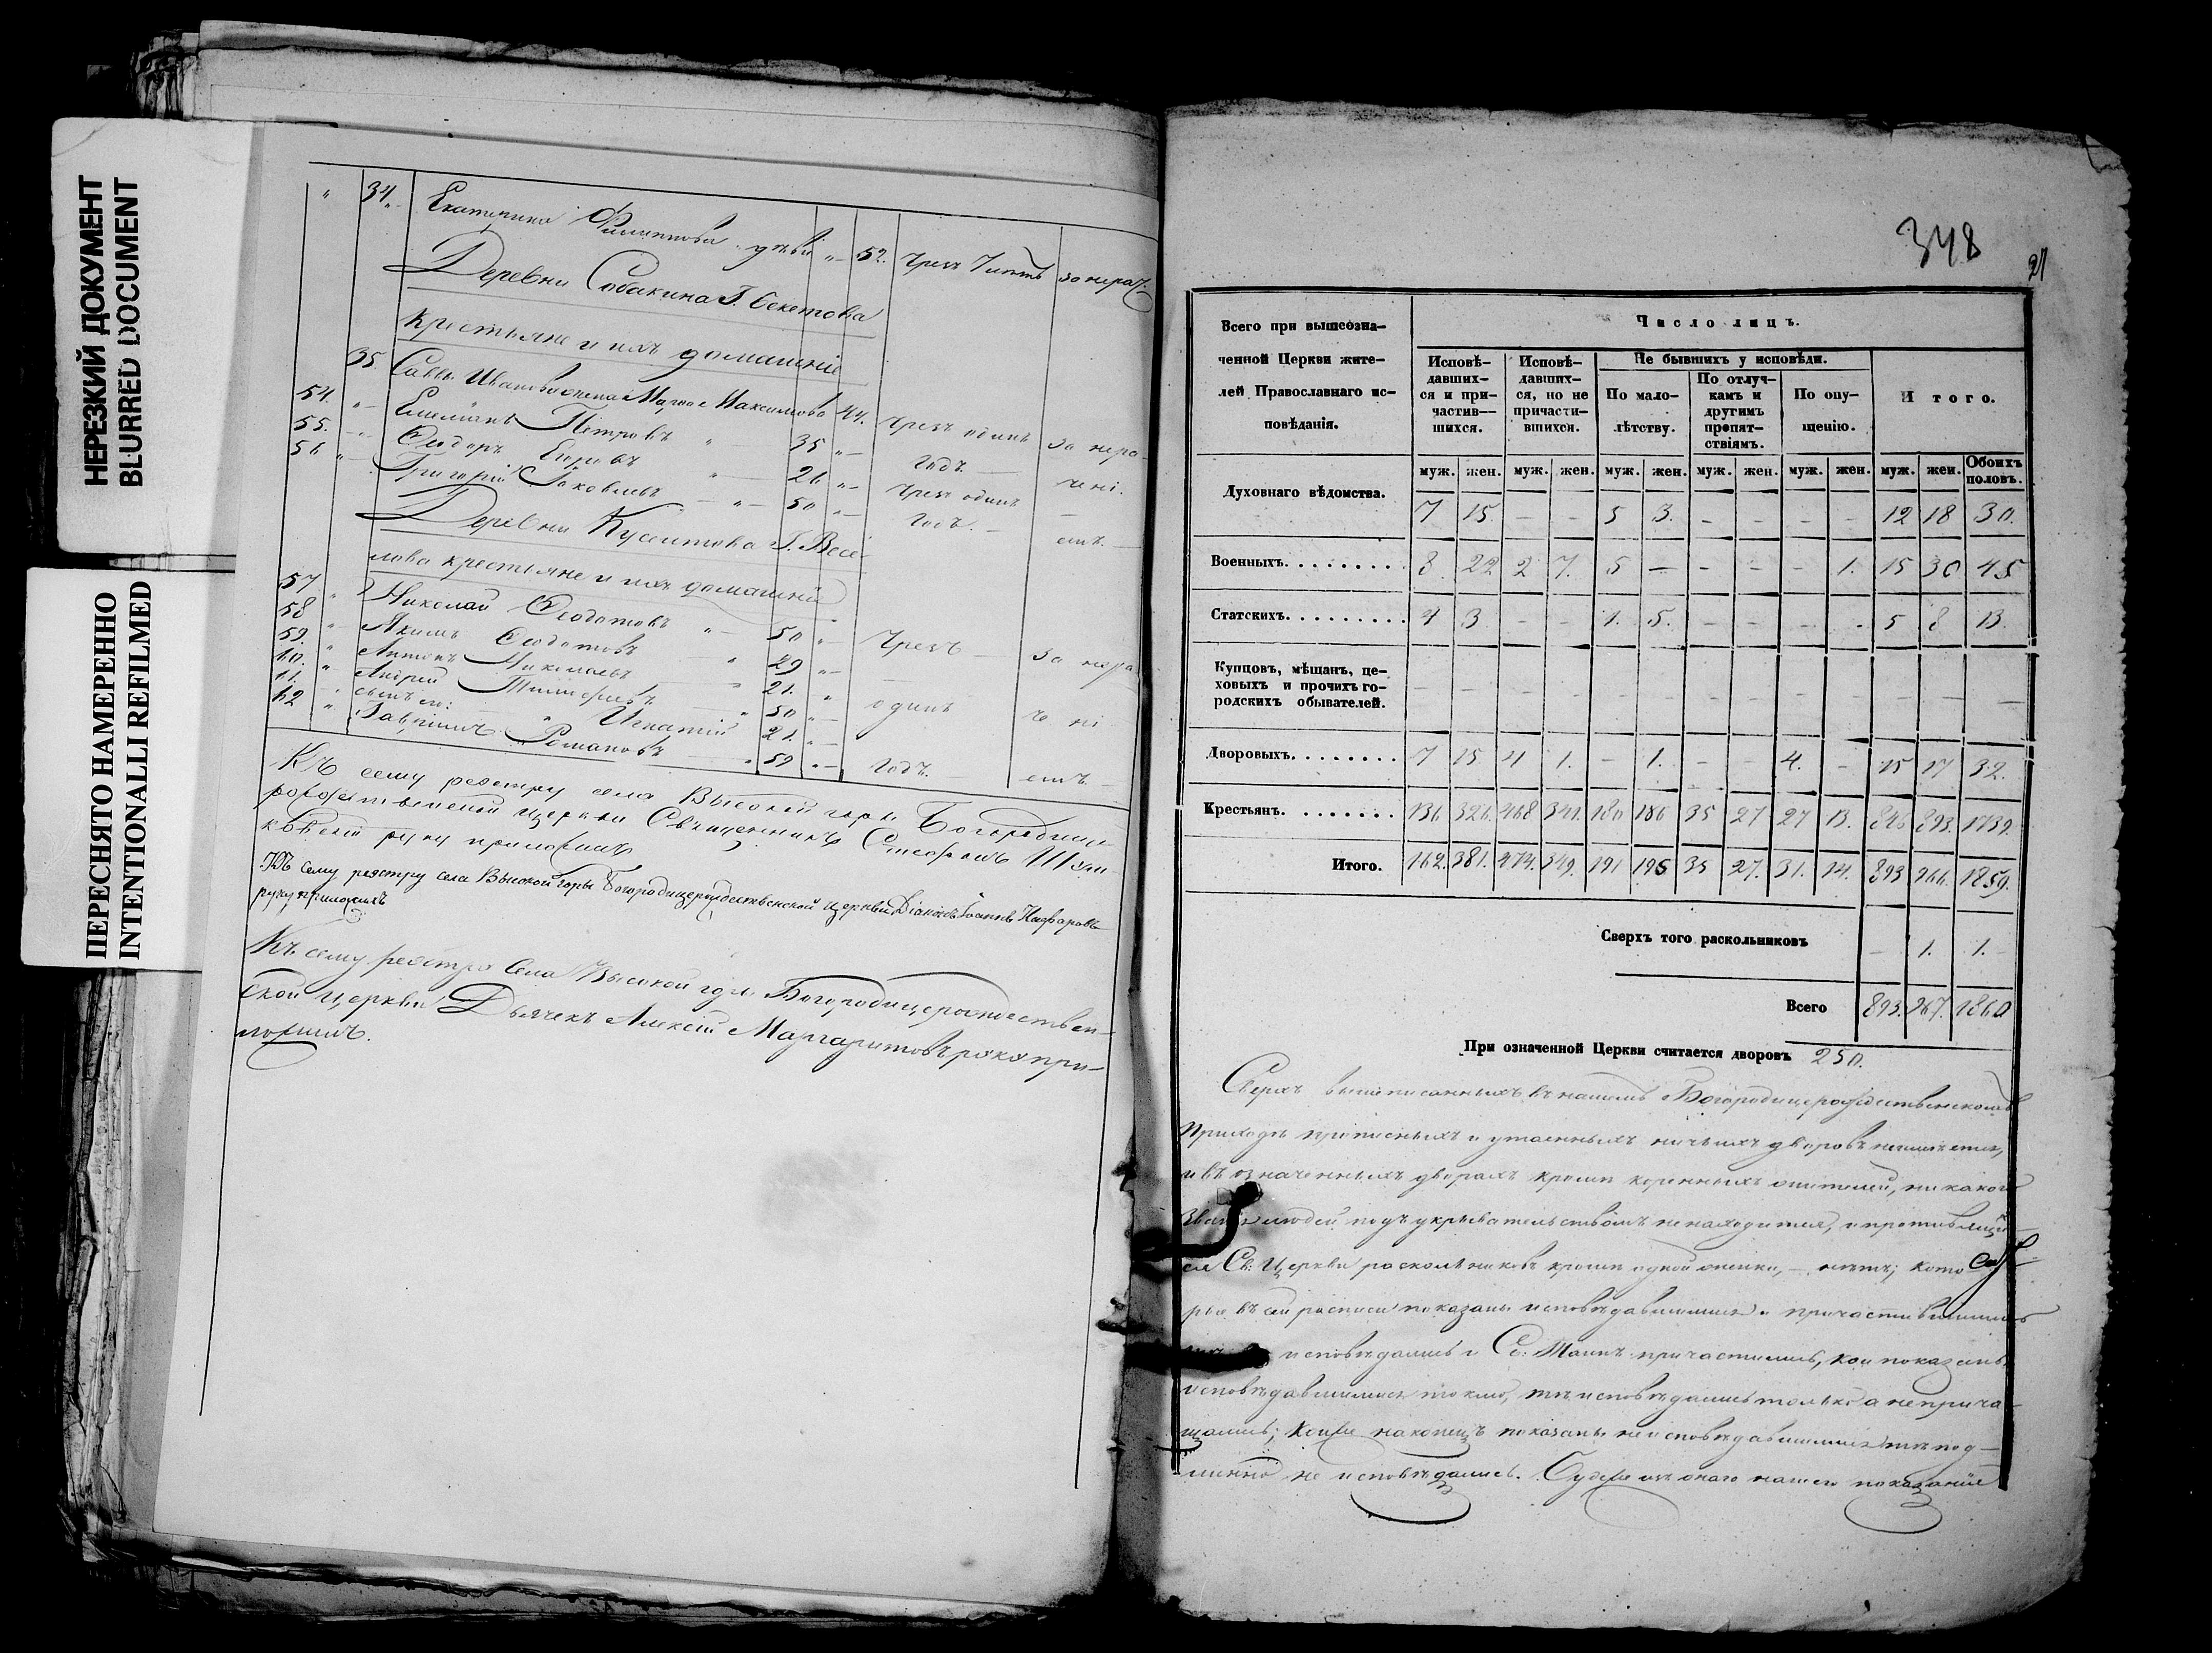 НЕРЕЗКИЙ ДОКУМЕНТ
BLURRED DOCUMENT
ПЕРЕСНЯТО НАМЕРЕННО
INTENTIONALLI REFILMED
" 34. Екатерина Филиппова 52. Чрез 7 лѣтъ за нерач.
Деревни Собакина Г. Бекетова
крестьяне и ихъ домашніе
35 Саввы Иванова жена Марѳа Максимова 44. Чрезъ одинъ за нера-
54. Емельянъ Петровъ 35 годъ. чені-
55. Ѳедоръ Егоровъ 26 Чрезъ одинъ
56 Григорій Яковлевъ 50 годъ. емъ.
Деревни Кусеитова Г. Весе-
лова крестьяне и ихъ домашніе
57 Николай Ѳедотовъ 50 Чрезъ за нера
58 Якимъ Ѳедотовъ 29
59. Антонъ Николаевъ 21. одинъ чені
60. Андрей Тимоѳеевъ 50
61. сынъ его: Игнатій 21.
62 Гавріилъ Романовъ 59 годъ. емъ
Къ сему реэстру села Высокой горы Богородице-
рождественской церкви Священникъ Стефанъ
руку приложилъ
Къ сему реэстру села Высокой горы Богородицерождественской церкви Діаконъ Іоаннъ
руку приложилъ
Къ сему реэстру Села Высокой горы Богородицерождествен-
ской церкви Дьячекъ Алексій Маргаритовъ руку при-
ложилъ.
348
21
Всего при вышеозна-
ченной Церкви жите-
лей Православнаго ис-
повѣданія.
Число лицъ.
Исповѣ-
давших-
ся и при-
частив-
шихся.
Исповѣ-
давших-
ся, но не
причасти-
вшихся.
Не бывшихъ у исповѣди.
По мало-
лѣтству.
По отлуч-
камъ и
другимъ
препят-
ствіямъ.
По опу-
щенію.
Итого.
муж. жен. муж. жен. муж. жен. муж. жен. муж. жен. муж. жен. Обоихъ половъ.
Духовнаго вѣдомства. 7 15 – – 5 3. – – – – 12 18 30.
Военныхъ. 8 22 2 7. 5 – – – – 1. 15 30 45
Статскихъ. 4 3 – – 1. 5. – – – – 5 8 13.
Купцовъ, мѣщанъ, це-
ховыхъ и прочихъ го-
родскихъ обывателей. – – – – – – – – – – – – –
Дворовыхъ. 7 15 4 1. – 1. – – 4. – 15 17 32.
Крестьянъ. 136 326. 468 341. 180 186 35 27 27 13. 846 893. 1739.
Итого. 162. 381. 474. 349. 191 195 35 27. 31. 14. 893 966. 1859.
Сверхъ того раскольниковъ – 1. 1.
Всего 893. 967. 1860
При означенной Церкви считается дворовъ 250.
Сверхъ вышеписанныхъ въ нашемъ Богородицерождественскомъ
Приходѣ прописныхъ и утаенныхъ ничьихъ дворовъ не имѣется,
и въ означенныхъ дворахъ кромѣ коренныхъ жителей, никакого
званія людей подъ укрывательствомъ не находится, и противящих-
ся Св. Церкви раскольниковъ кромѣ одной женки, – нѣтъ; кото-
рые въ сей росписи показаны исповѣдавшимися и причастившимися
исповѣдались и Св. Таинъ причастились, кои показаны
исповѣдавшимися токмо, тѣ исповѣдались только а не прича-
щались; кои же наконецъ показаны не исповѣдавшимися тѣ под-
линно не исповѣдались. Буде же изъ онаго нашего показанія